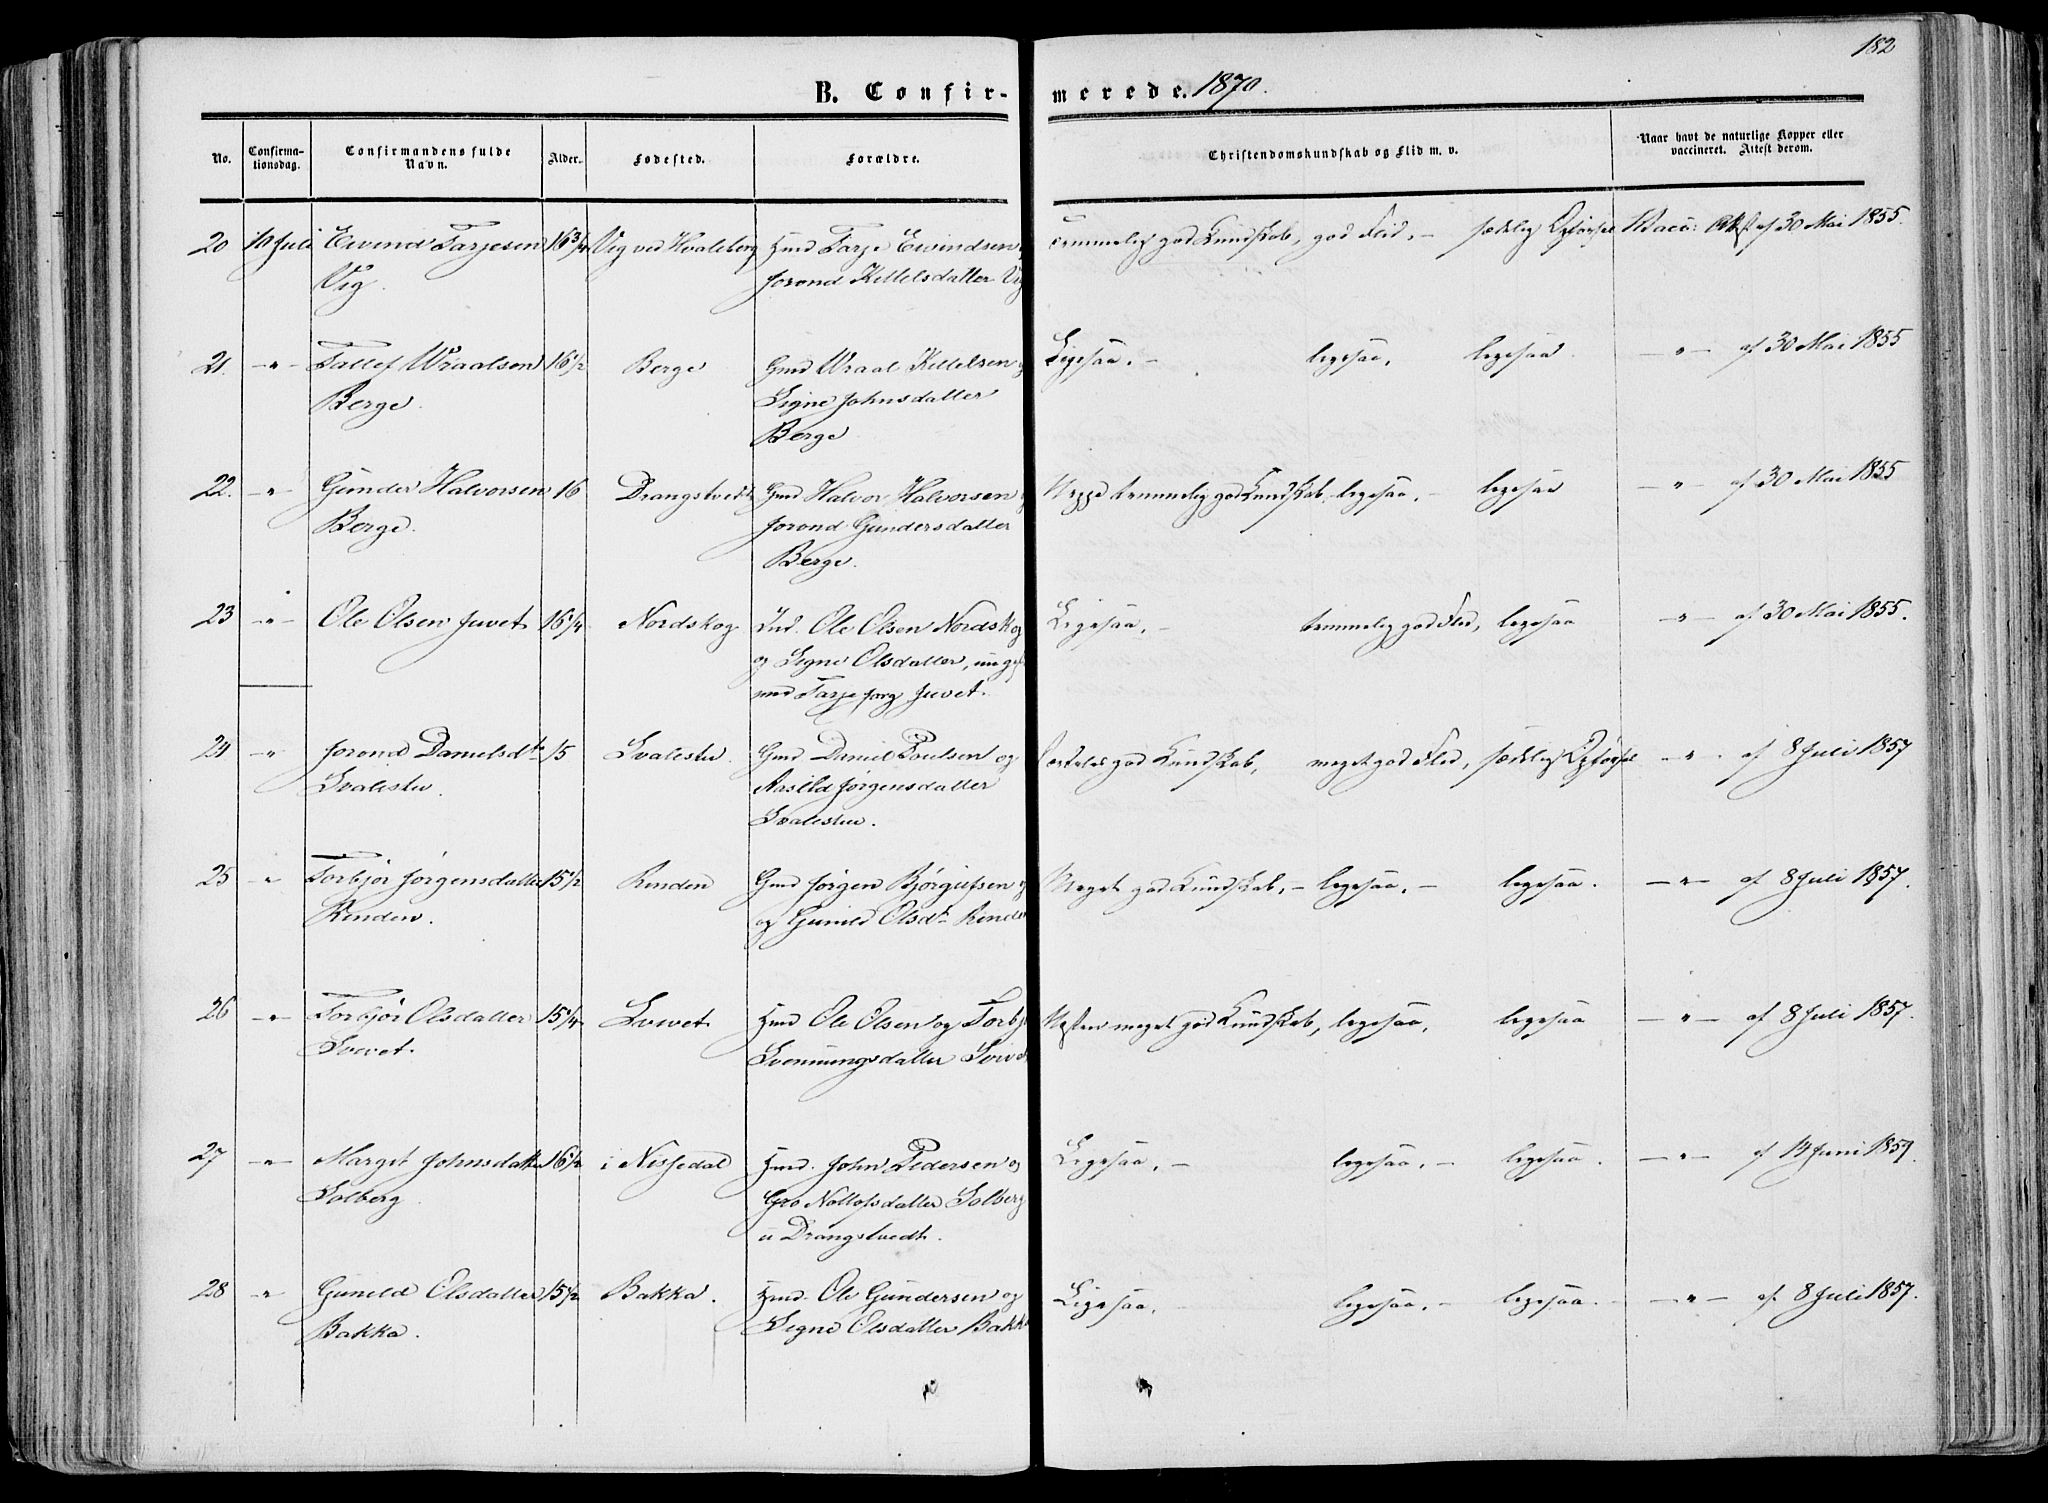 182
B. Confirmerede. 1870.
No. Confirmationsdag. Confirmandens fulde Navn. Alder. Fødested. Forældre. Christendomskundskab og Flid m. v. Naar havt de naturlige Kopper eller vaccineret. Attest derom.
20 10 Juli Eivind Tarjesen 16 3/4 Vig ved Kvaleberg Hmd Tarje Eivindsen Temmelig god Kundskab, god Flid, – sædelig Opførsel Vacc: Att af 30 Mai 1855.
Vig. Jorond Kittelsdatter Vig
21. –"– Tallef Wraalsen 16 1/2 Berge Gmd Wraal Kittelsen og Ligesaa. – ligesaa, ligesaa. –"– af 30 Mai 1855
Berge. Signe Johnsdatter
Berge
22. –"– Gunder Halvorsen 16 Drangstvedt Gmd Halvor Halvorsen og Neppe temmelig god Kundskab, – ligesaa. – ligesaa –"– af 30 Mai 1855
Berge. Jorond Gundersdatter
Berge.
23 –"– Ole Olsen Juvet 16 1/4 Nordskog Ind. Ole Olsen Nordskog Ligesaa. – temmelig god Flid, ligesaa –"– af 30 Mai 1855.
og Signe Olsdatter,
med Tarje Juvet.
24 –"– Jorond Danielsdtr 15 Svalestu. Gmd. Daniel Poulsen og god Kundskab, meget god Flid, sædelig Opførsel –"– af 8 Juli 1857
Svalestu. Aasild Jørgensdatter
Svalestu.
25 –"– Torbjør Jørgensdatter 15 1/2 Rinden Gmd Jørgen Bjørgufsen og Meget god Kundskab, – ligesaa. – ligesaa. –"– af 8 Juli 1857.
Rinden. og Gunild Olsdtr Rinden
26 –"– Torbjør Olsdatter 15 1/4 Svevet Hmd Ole Olsen og Torbjør Næsten meget god Kundskab, ligesaa, ligesaa –"– af 8 Juli 1857.
Svevet. Svenningsdatter
27 –"– Margit Johnsdatter 16 1/2 i Nissedal Hmd. John Pedersen og Ligesaa. – ligesaa. – ligesaa. –"– af 14 Juni 1859.
Solberg Gro Nottolfsdatter Solberg
u Drangstvedt.
28 –"– Gunild Olsdatter 15 1/2 Bakka. Hmd. Ole Gundersen og Ligesaa. ligesaa. – ligesaa. –"– af 8 Juli 1857.
Bakka. Signe Olsdatter Bakka